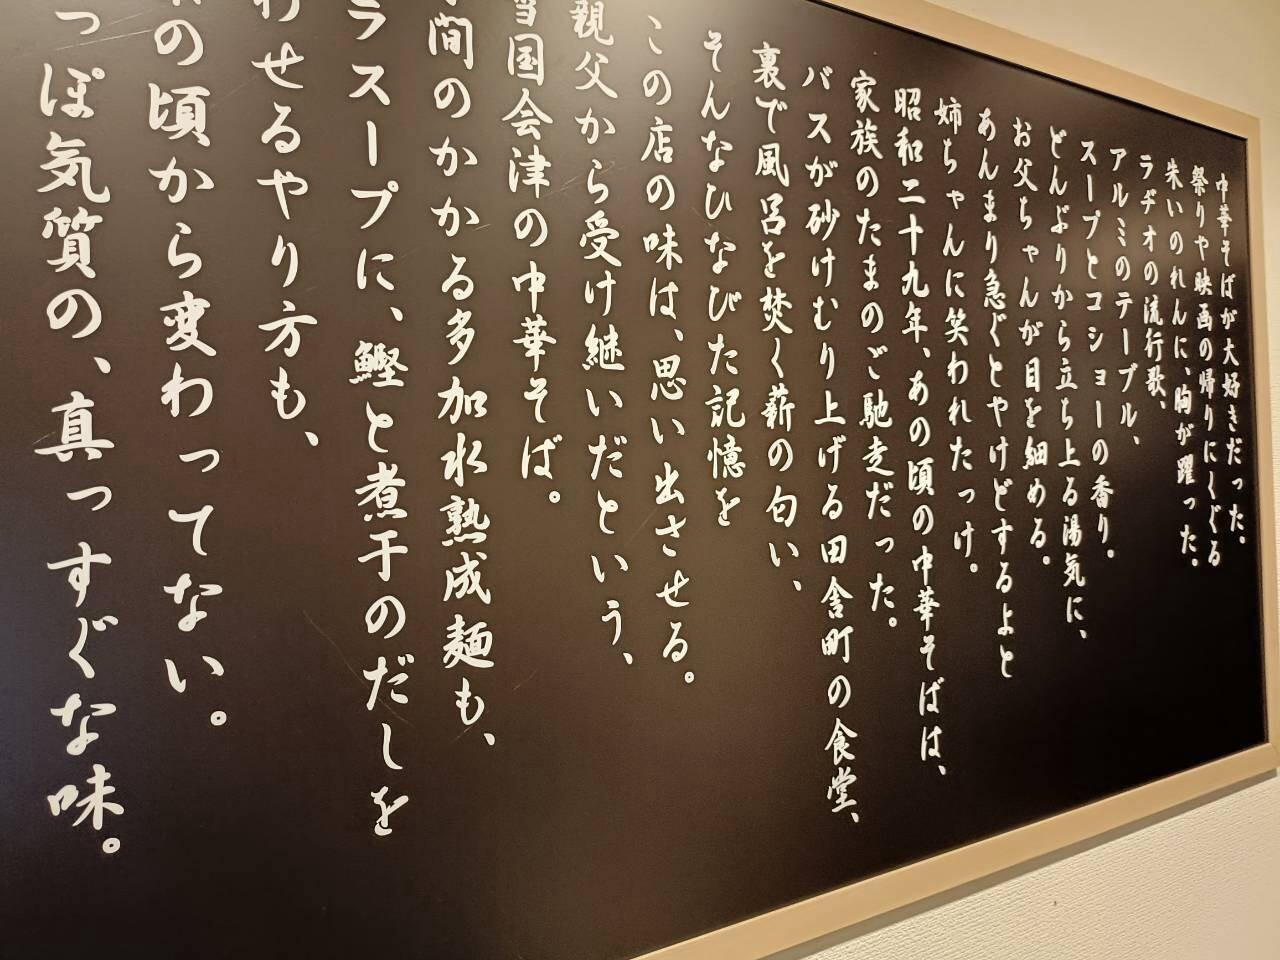 中華そばが大好きだった。
祭りや映画の帰りにくぐる
朱いのれんに、胸が躍った。
ラヂオの流行歌、
アルミのテーブル、
スープとコショーの香り。
どんぶりから立ち上る湯気に、
お父ちゃんが目を細める。
あんまり急ぐとやけどするよと
姉ちゃんに笑われたっけ。
昭和二十九年、あの頃の中華そばは、
家族のたまのご馳走だった。
バスが砂けむり上げる田舎町の食堂、
裏で風呂を焚く薪の匂い、
そんなひなびた記憶を
この店の味は、思い出させる。
親父から受け継いだという、
当国会津の中華そば。
間のかかる多加水熟成麺も、
ラスープに、鰹と煮干のだしを
わせるやり方も、
の頃から変わってない。
っぽ気質の、真っすぐな味。